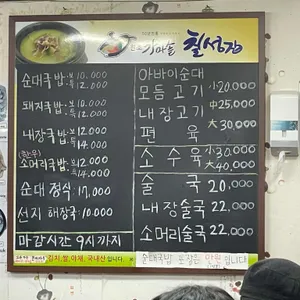 칠성장
순대국밥 보 10,000
특 12,000
돼지국밥 보 10,000
특 12,000
내장국밥 보 12,000
특 14,000
(한우)
소머리국밥 보 12,000
특 14,000
순대 정식 : 17,000
선지 해장국 : 10,000
마감시간 9시까지
김치,쌀,야채, 국내산입니다.
아바이순대
모듬고기 小20,000
내장고기 中25,000
편육 大30,000
소수육 小30,000
大40,000
술국 20,000
내장술국 22,000
소머리술국 22,000